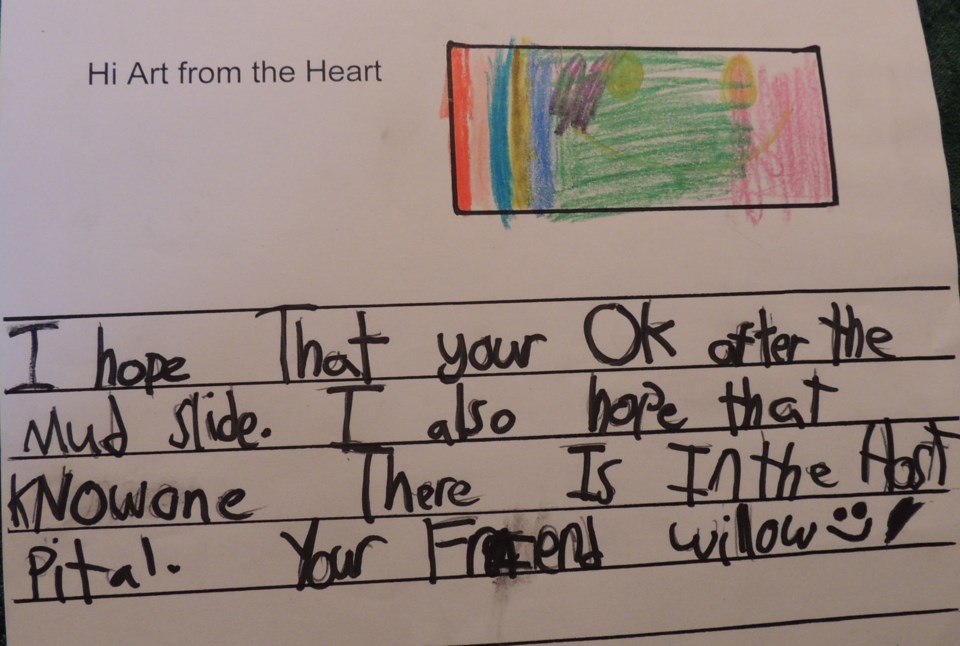 Hi Art from the Heart
I hope That your Ok after the
Mud slide. I also hope that
KNowone There Is In the Host
Pital. Your Friend willow